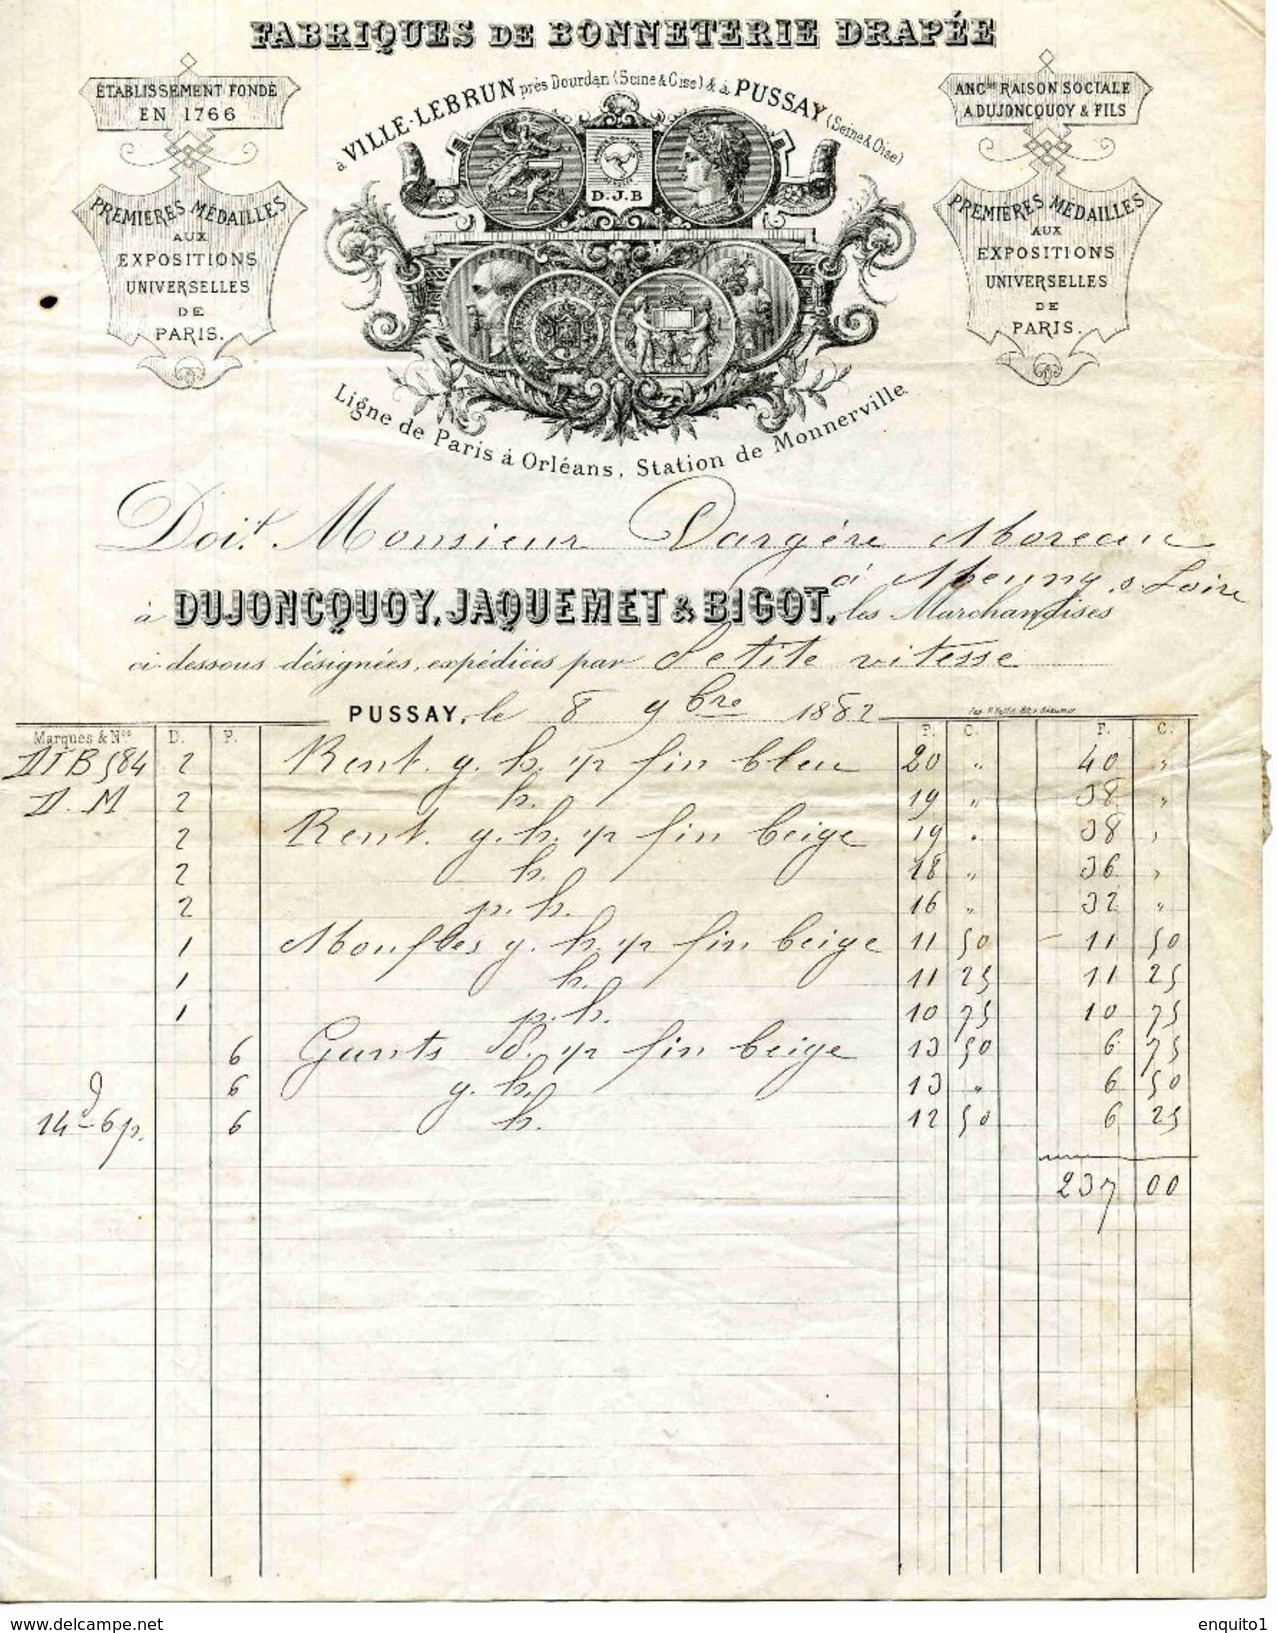 FABRIQUES DE BONNETERIE DRAPÉE
ÉTABLISSEMENT FONDÉ
EN 1766
PREMIÈRES MÉDAILLES
AUX
EXPOSITIONS
UNIVERSELLES
DE
PARIS.
à VILLE-LEBRUN près Dourdan (Seine & Oise) & à PUSSAY (Seine & Oise)
D.J.B
Ligne de Paris à Orléans, Station de Monnerville
ANC.ne RAISON SOCIALE
A DUJONCQUOY & FILS
PREMIÈRES MÉDAILLES
AUX
EXPOSITIONS
UNIVERSELLES
DE
PARIS.
Doit Monsieur Dargère Moreau
à Meung s Loire
à DUJONCQUOY, JAQUEMET & BIGOT, les Marchandises
ci-dessous désignées, expédiées par Petite vitesse
PUSSAY, le 8 9bre 1882
Marques & Nos D. P. F. C. F. C.
DJB 584 2 Rent. g. h. yr fin bleu 20 " 40 "
D. M 2 h. 19 " 38 "
2 Rent. g. h. yr fin beige 19 " 38 "
2 h. 18 " 36 "
2 p. h. 16 " 32 "
1 Moufles g. h. yr fin beige 11 50 11 50
1 h. 11 25 11 25
1 p. h. 10 75 10 75
6 Gants d. yr fin beige 13 50 6 75
6 g. h. 13 " 6 50
14 d 6 p. 6 h. 12 50 6 25
237 00
www.delcampe.net
enquito1